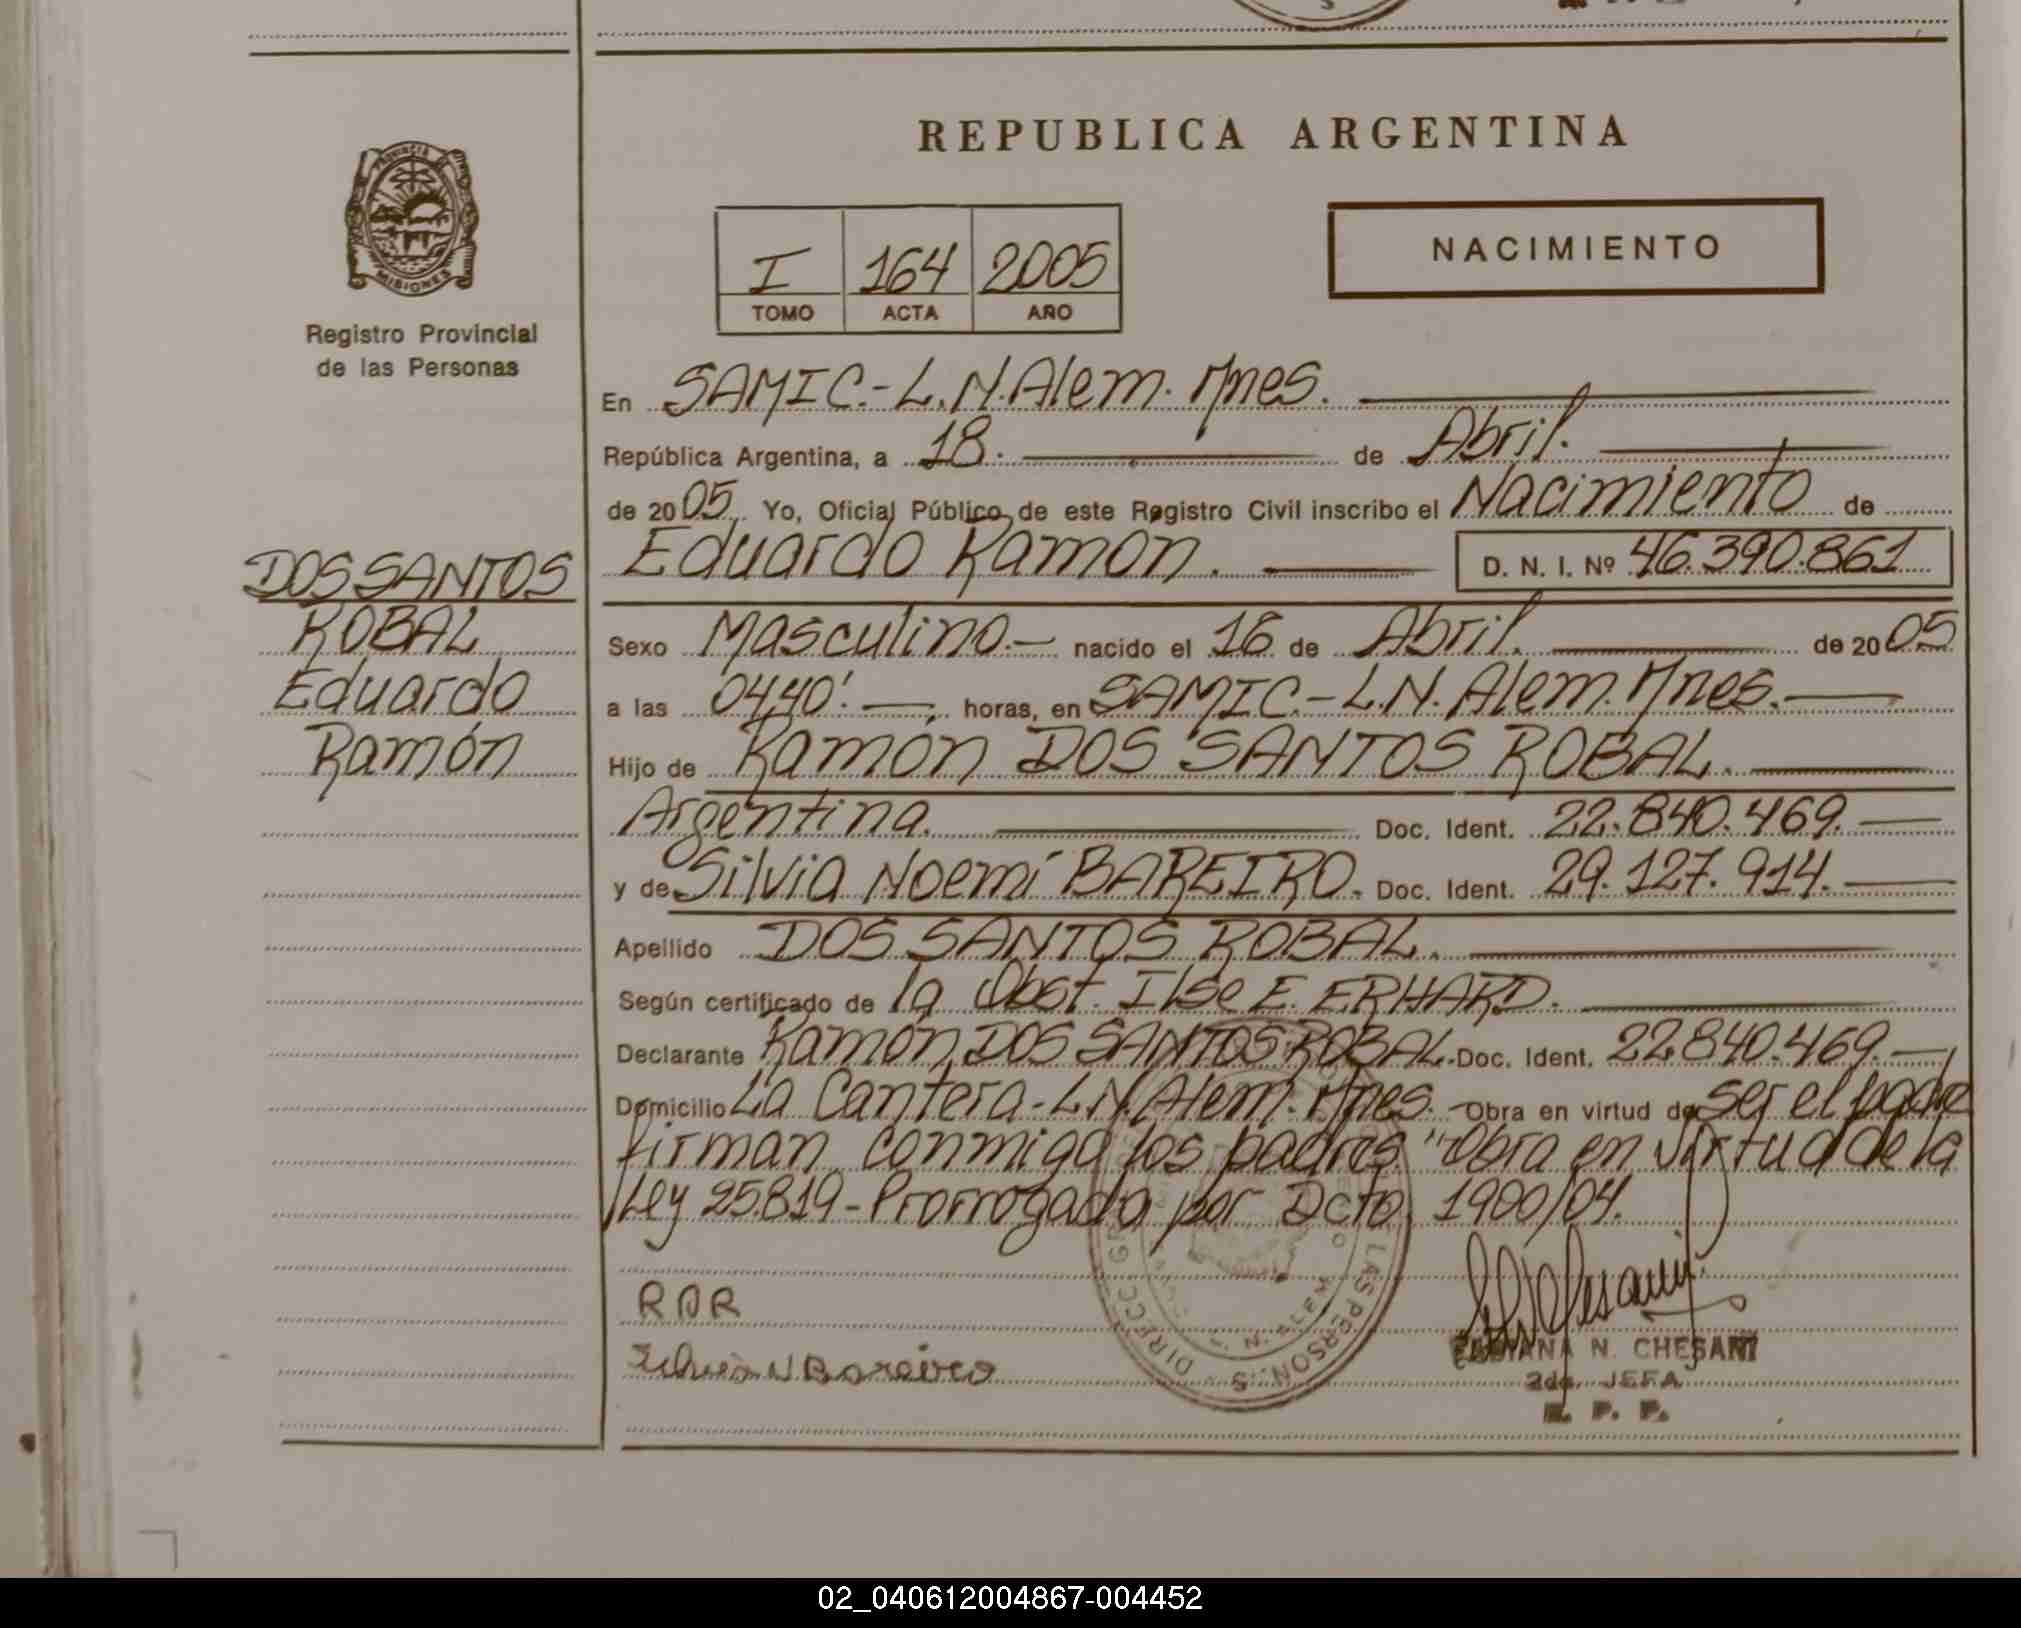 REPUBLICA ARGENTINA
PROVINCIA
MISIONES
Registro Provincial
de las Personas
NACIMIENTO
I 164 2005
TOMO ACTA AÑO
En SAMIC.-L.N.Alem. Mnes.
República Argentina, a 18. de Abril.
de 2005. Yo, Oficial Público de este Registro Civil inscribo el Nacimiento de
Eduardo Ramón. D. N. I. Nº 46.390.861
DOS SANTOS
ROBAL
Eduardo
Ramón
Sexo Masculino.- nacido el 16 de Abril. de 2005
a las 04,40'. horas, en SAMIC.-L.N. Alem. Mnes.
Hijo de Ramón DOS SANTOS ROBAL.
Argentina. Doc. Ident. 22.840.469.
y de Silvia Noemí BAREIRO. Doc. Ident. 29.127.914.
Apellido DOS SANTOS ROBAL.
Según certificado de la Obst. Ilse E. ERHARD.
Declarante Ramón DOS SANTOS ROBAL. Doc. Ident. 22.840.469.
Domicilio La Cantera-L.N.Alem. Mnes. Obra en virtud de ser el padre
firman conmigo los padres "Obra en virtud de la
Ley 25.819-Prorrogado por Dcto. 1900/04.
RDR
Silvia N Bareiro
N. CHESANI
2da. JEFA
R. P. P.
02_040612004867-004452